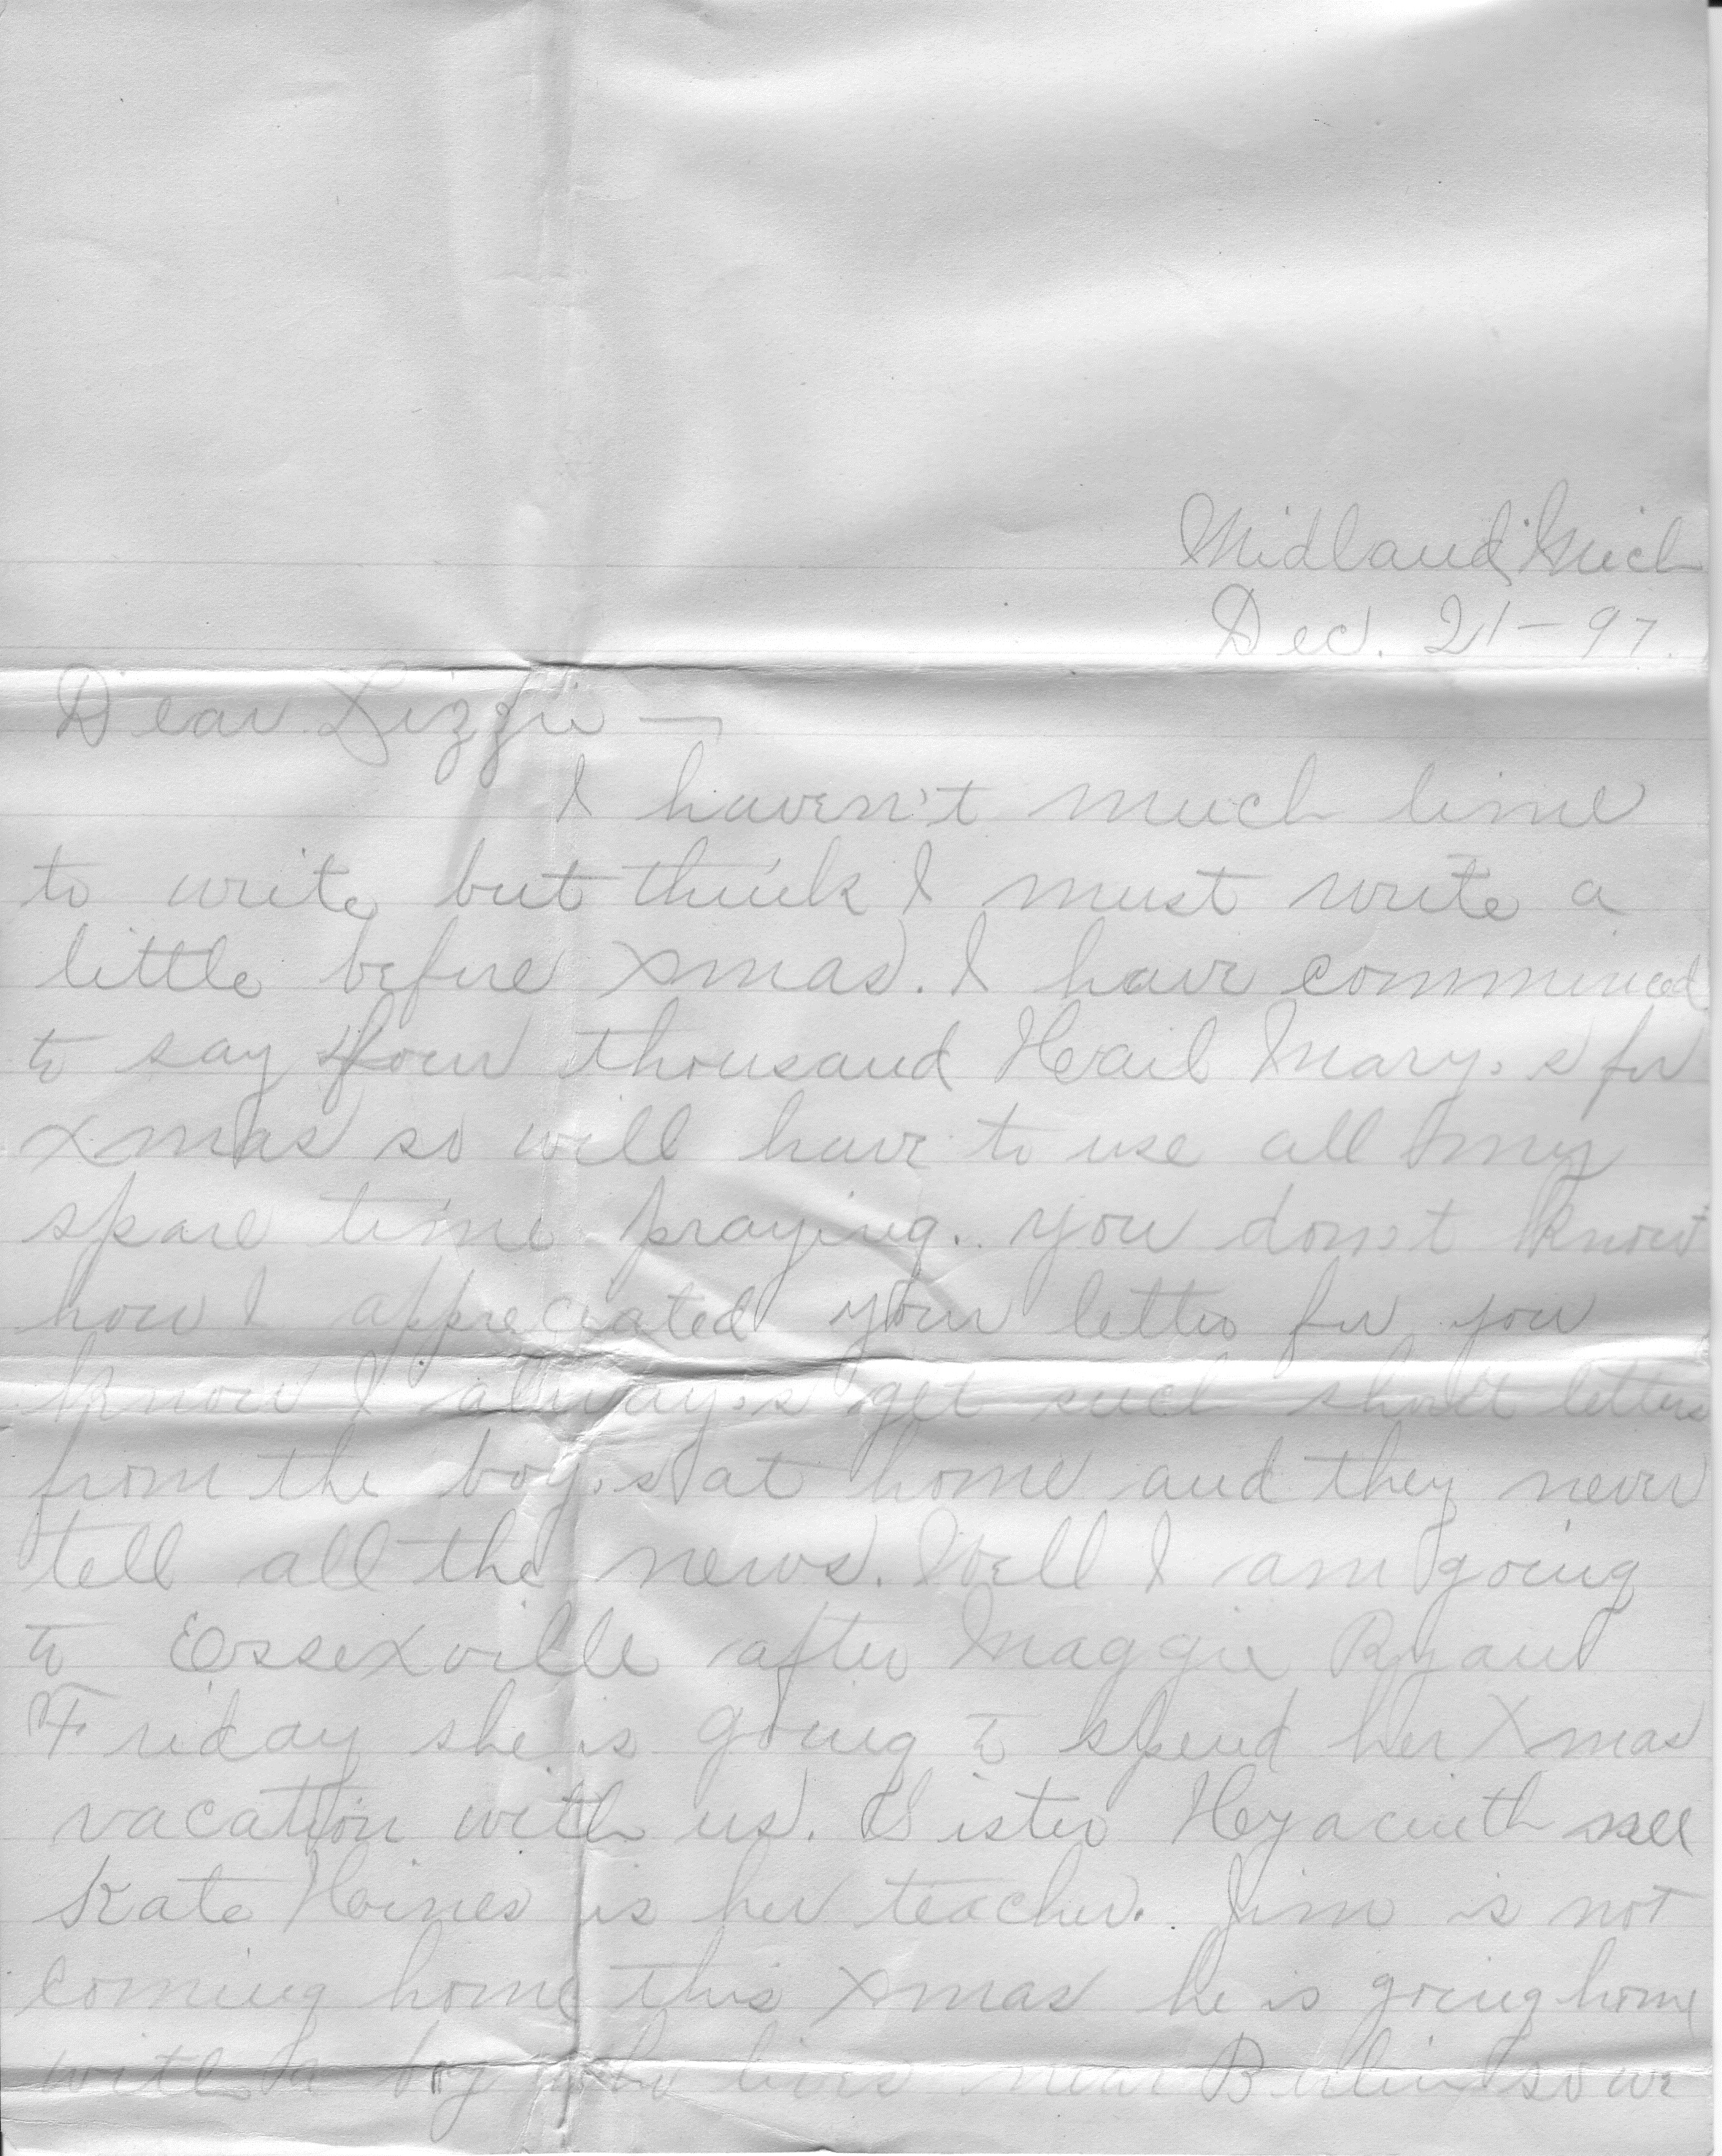 Midland, Mich
Dec. 21 - 97.
Dear Lizzie —
I haven't much time
to write but think I must write a
little before Xmas. I have commenced
to say four thousand Hail Mary's for
Xmas so will have to use all my
spare time praying. you don't know
how I appreciated your letter for you
know I always get such short letters
from the boy's at home and they never
tell all the news. Well I am going
to Essexville after Maggie Ryan
Friday she is going to spend her Xmas
vacation with us. Sister Hyacinth
Kate Hines is her teacher. Jim is not
coming home this Xmas he is going home
with a boy who lives near Berlin so we